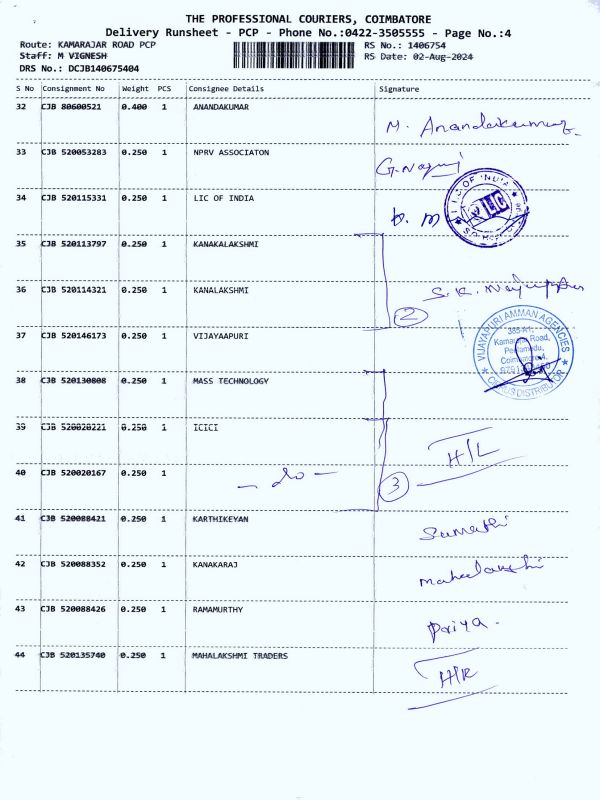 THE PROFESSIONAL COURIERS, COIMBATORE
Delivery Runsheet - PCP - Phone No.:0422-3505555 - Page No.:4
Route: KAMARAJAR ROAD PCP RS No.: 1406754
Staff: M VIGNESH RS Date: 02-Aug-2024
DRS No.: DCJB140675404
S No Consignment No Weight PCS Consignee Details Signature
32 CJB 80600521 0.400 1 ANANDAKUMAR M. Anandakumar
33 CJB 520053283 0.250 1 NPRV ASSOCIATON
34 CJB 520115331 0.250 1 LIC OF INDIA
35 CJB 520113797 0.250 1 KANAKALAKSHMI
36 CJB 520114321 0.250 1 KANALAKSHMI S.K.
2
37 CJB 520146173 0.250 1 VIJAYAAPURI
VIJAYAPURI AMMAN AGENCIES
385-A1,
Kamarajar Road,
38 CJB 520130808 0.250 1 MASS TECHNOLOGY
39 CJB 520020221 0.250 1 ICICI H/L
40 CJB 520020167 0.250 1 - do -
3
41 CJB 520088421 0.250 1 KARTHIKEYAN Sumathi
42 CJB 520088352 0.250 1 KANAKARAJ Mahalakshi
43 CJB 520088426 0.250 1 RAMAMURTHY Priya.
44 CJB 520135740 0.250 1 MAHALAKSHMI TRADERS H/R